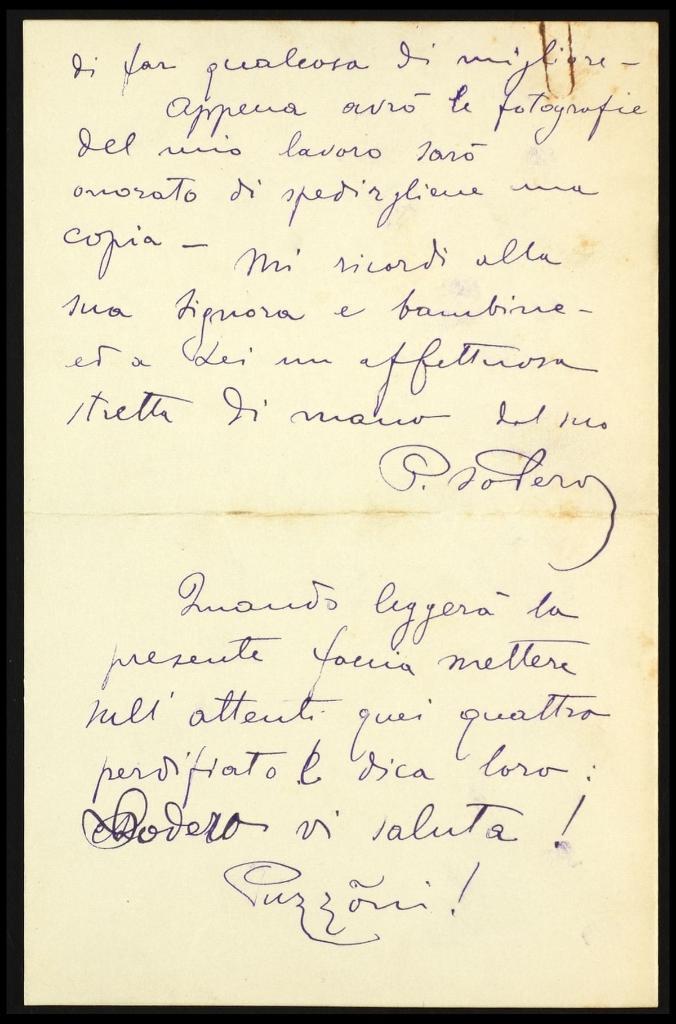 di far qualcosa di migliore -
Appena avrò le fotografie
del mio lavoro sarò
onorato di spedirgliene una
copia - Mi ricordi alla
sua Signora e bambine -
ed a Lei un affettuosa
stretta di mano dal suo
P. Sodero
Quando leggerà la
presente faccia mettere
sull' attenti quei quattro
perdifiato e dica loro:
Sodero vi saluta!
Puzzōni!